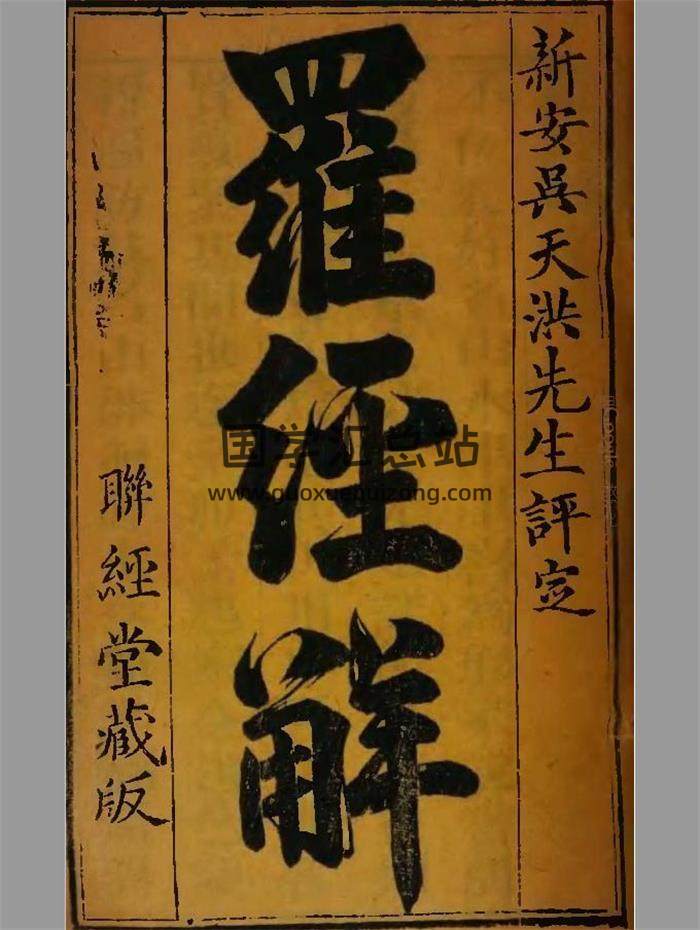 新安吳天洪先生評定
羅經解
聯經堂藏版
国学汇总站
www.guoxuehuizong.com